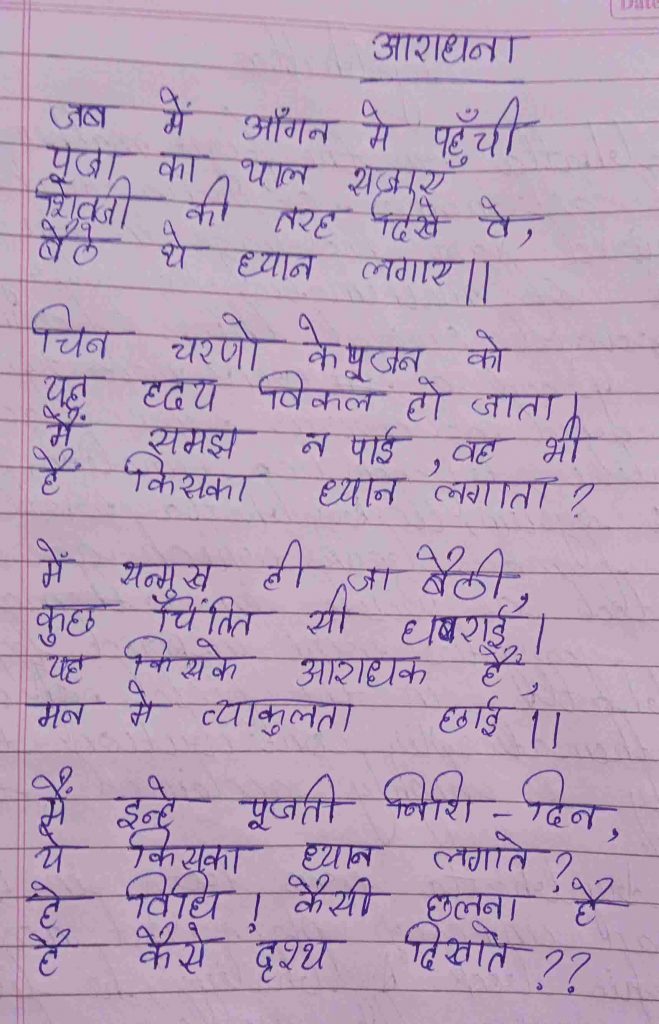 Date
आराधना
जब में आँगन मे पहुँची
पूजा का थाल सजाए
शिवजी की तरह दिखे वे,
बैठे थे ध्यान लगाए।।
चिन चरणो के पूजन को
यह हृदय विकल हो जाता।
मैं समझ न पाई, वह भी
है किसका ध्यान लगाता?
में सन्मुख ही जा बैठी,
कुछ चिंतित सी घबराई।
यह किसके आराधक हैं,
मन मे व्याकुलता छाई।।
मैं इन्हे पूजती निशि-दिन,
ये किसका ध्यान लगाते?
हे विधि! कैसी छलना है
हैं कैसे दृश्य दिखाते??